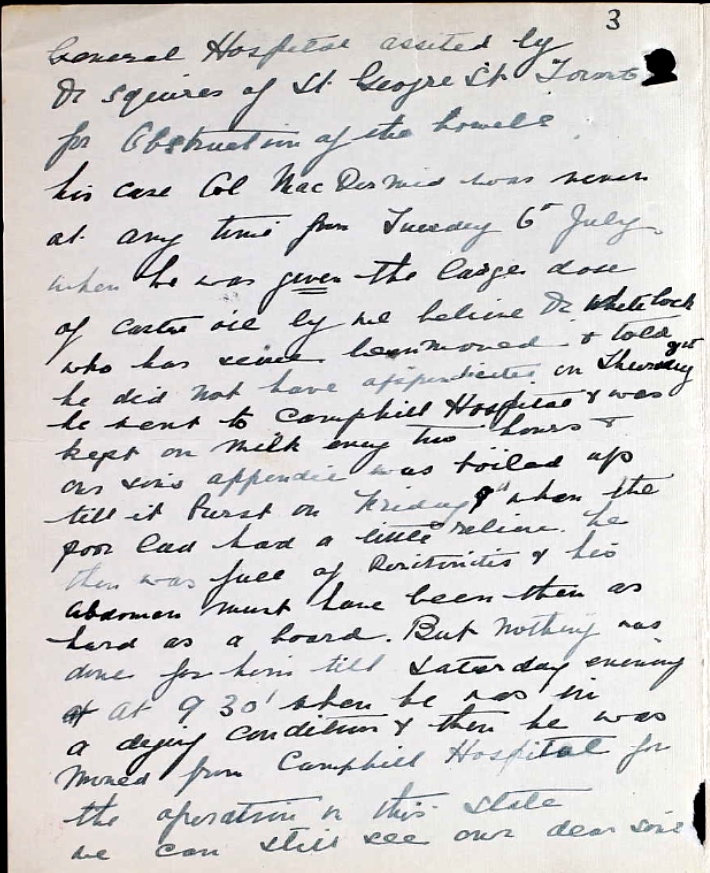 3
General Hospital assited by
Dr Squires of St Geogre St Toronto
for Obstruction of the bowels
his case Col MacDermid was never
at any time from Tuesday 6th July
when he was given the large dose
of castor oil by we believe Dr Whitelock
who has since been moved & told
he did not have appendicites on Thursday
he sent to Camphill Hospital & was
kept on milk every two hours &
our sons appendix was boiled up
till it burst on Friday 9th when the
poor lad had a little relieve he
then was full of Peritinitis & his
abdomen must have been then as
hard as a board. But nothing was
done for him till Saturday evening
at 9 30' when he was in
a dying condition & then he was
moved from Camphill Hospital for
the operation in this state
we can still see our dear sons